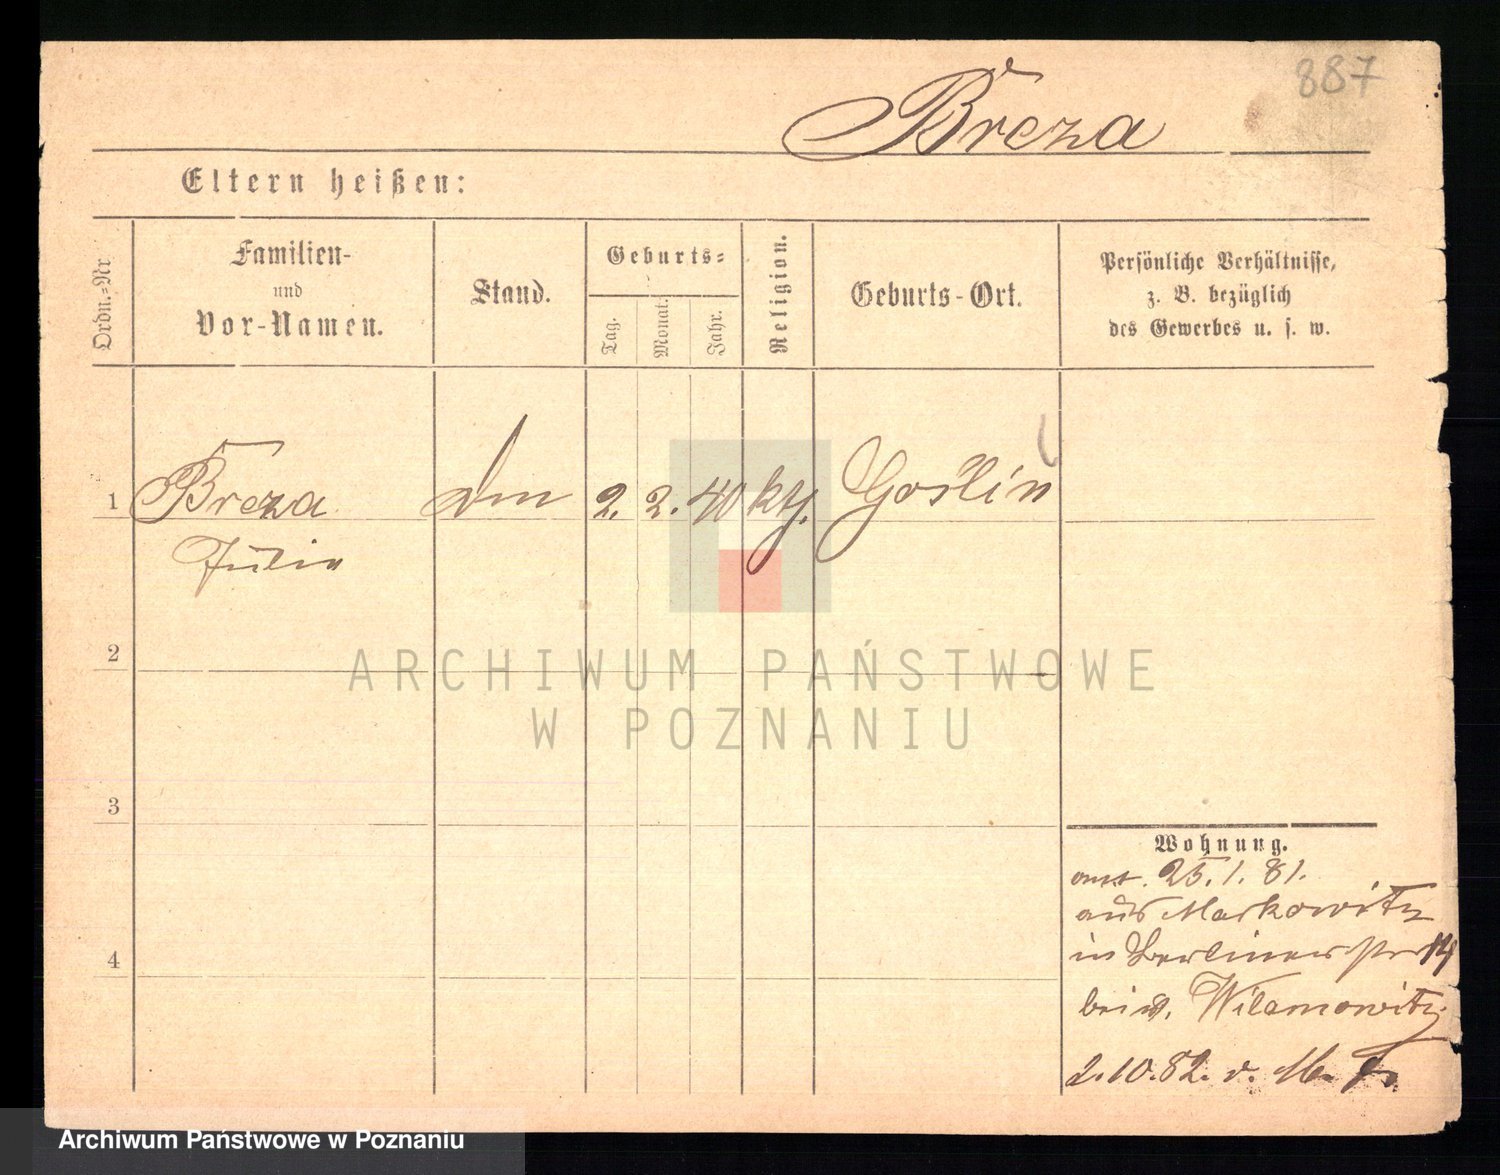 887
Breza
Eltern heißen:
Ordn.-Nr
Familien-
und
Vor-Namen.
Stand.
Geburts-
Tag.
Monat.
Jahr.
Religion.
Geburts-Ort.
Persönliche Verhältnisse,
z. B. bezüglich
des Gewerbes u. s. w.
1 Breza 2. 2. 40 kth. Goślin
Julie
2
3
4
ARCHIWUM PAŃSTWOWE
W POZNANIU
Wohnung.
25.1.81.
aus Markowitz
in Berlinerstr 14
bei v. Wilamowitz
2.10.82. v.
Archiwum Państwowe w Poznaniu